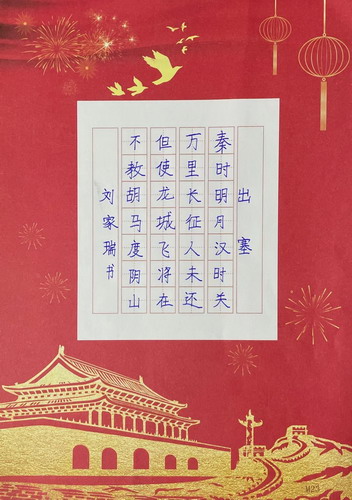 出塞
秦时明月汉时关
万里长征人未还
但使龙城飞将在
不教胡马度阴山
刘家瑞书
M23